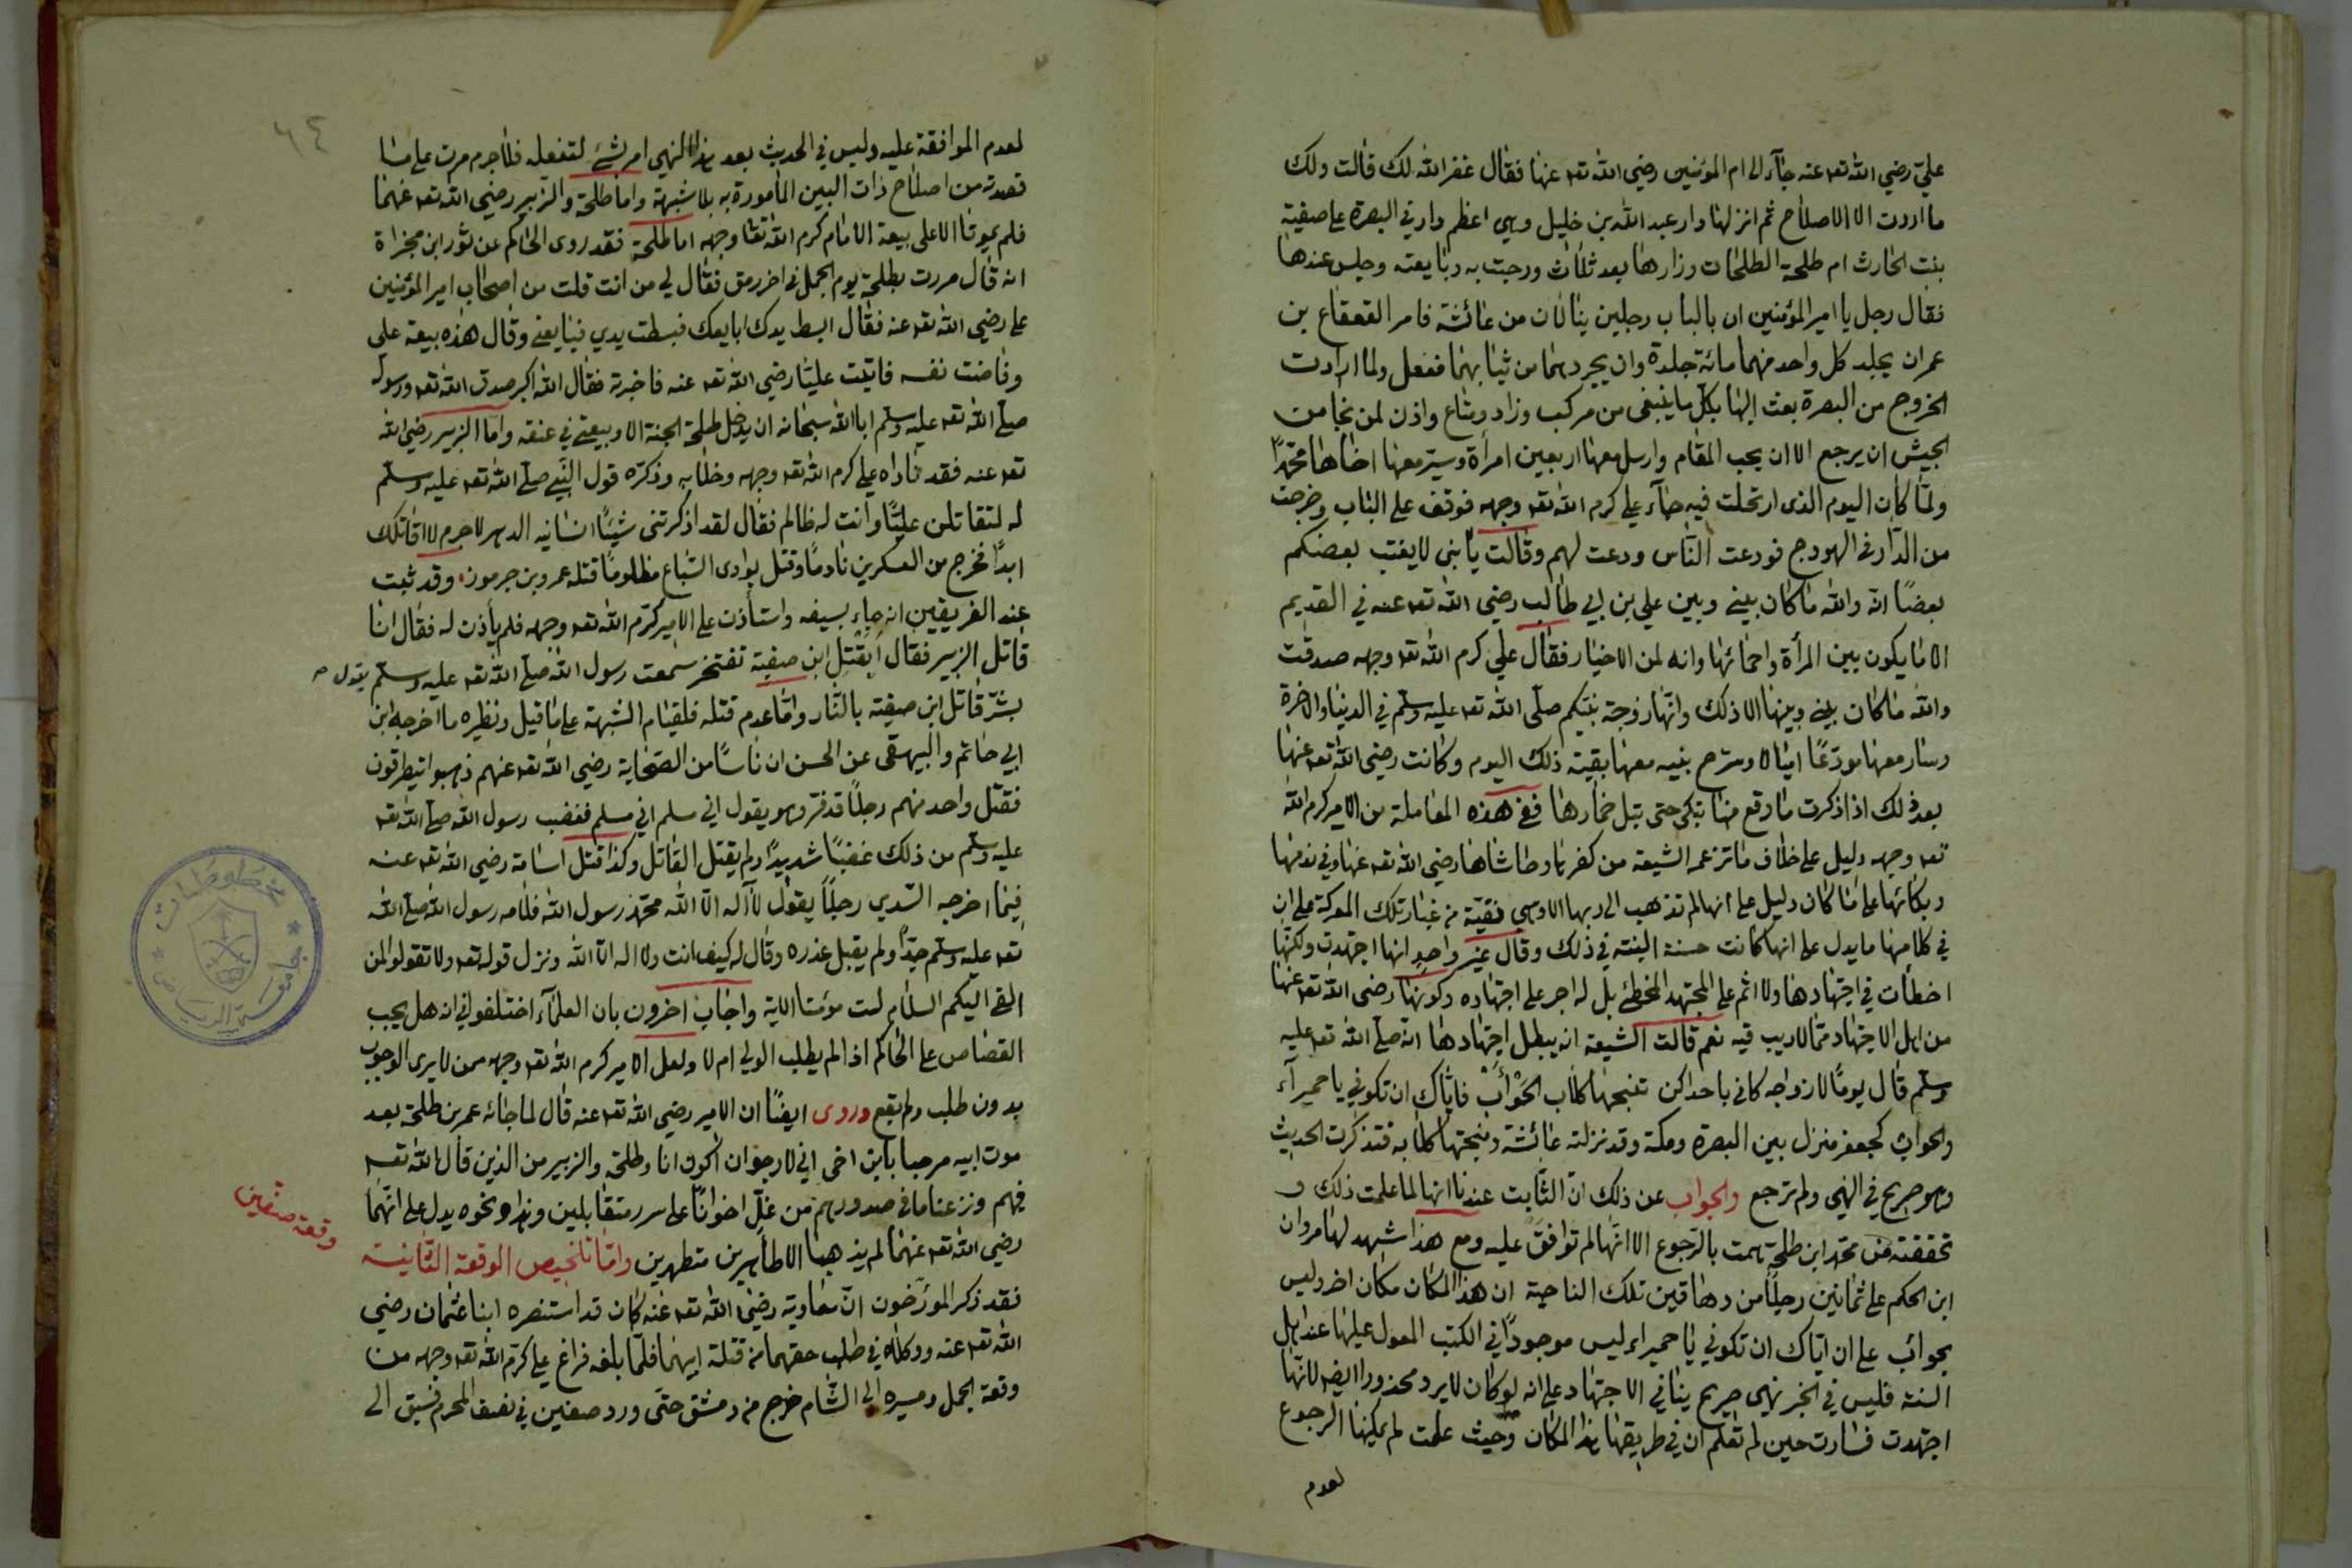 علي رضي الله تعه عنه جآء الى ام المؤمنين رضي الله تعه عنها فقال غفر الله لك قالت ولك
ما اردت الا الاصلاح ثم انزلها دار عبد الله بن خليل وهي اعظم دار في البصرة على صفية
بنت الحارث ام طلحة الطلحات وزارها بعد ثلاث ورحبت به وبايعته وجلس عندها
فقال رجل يا امير المؤمنين ان بالباب رجلين ينالان من عائشة فامر القعقاع بن
عمران يجلد كل واحد منهما مائة جلدة وان يجردهما من ثيابهما ففعل ولما ارادت
الخروج من البصرة بعث اليها بكل ما ينبغي من مركب وزاد ومتاع واذن لمن نجا من
الجيش ان يرجع الا ان يحب المقام وارسل معها اربعين امرأة وسير معها اخاها محمدًا
ولما كان اليوم الذى ارتحلت فيه جآء علي كرم الله تعه وجهه فوقف على الباب وخرجت
من الدار في الهودج فودعت الناس ودعت لهم وقالت يا بنى لا يغتب بعضكم
بعضًا انه والله ما كان بيني وبين علي بن ابي طالب رضي الله تعه عنه في القديم
الا ما يكون بين المرأة واحمائها وانه لمن الاخيار فقال علي كرم الله تعه وجهه صدقت
والله ما كان بيني وبينها الا ذلك وانها زوجة نبيكم صلى الله تعه عليه وسلم في الدنيا والاخرة
وسار معها مودعًا اميالا وسرح بنيه معها بقية ذلك اليوم وكانت رضي الله تعه عنها
بعد ذلك اذا ذكرت ما وقع منها تبكي حتى تبل خمارها ففي هذه المعاملة من الامير كرم الله
تعه وجهه دليل على خلاف ما تزعمه الشيعة من كفرها وحاشاها رضي الله تعه عنها وفي ندمها
وبكائها على ما كان دليل على انها لم تذهب الى ربها الا وهي نقية من غبار تلك المعركة على ان
في كلامها ما يدل على انها كانت حسنة النية في ذلك وقال غير واحد انها اجتهدت ولكنها
اخطأت في اجتهادها ولا اثم على المجتهد المخطئ بل له اجر على اجتهاده وكونها رضي الله تعه عنها
من اهل الاجتهاد مما لا ريب فيه نعم قالت الشيعة انه يبطل اجتهادها انه صلى الله تعه عليه
وسلم قال يومًا لازواجه كاني باحداكن تنبحها كلاب الحَوْأب فاياك ان تكوني يا حميرآء
والحوأب كجعفر منزل بين البصرة ومكة وقد نزلته عائشة ونبحتها كلابه فتذكرت الحديث
وهو صريح في النهي ولم ترجع والجواب عن ذلك ان الثابت عندنا انها لما علمت ذلك و
تحققته من محمد ابن طلحة همت بالرجوع الا انها لم توافق عليه ومع هذا شهد لها مروان
ابن الحكم على ثمانين رجلًا من دهاقين تلك الناحية ان هذا المكان مكان اخر وليس
بحوأب على ان اياك ان تكوني يا حميراء ليس موجودًا في الكتب المعول عليها عند اهل
السنة فليس في الخبر نهي صريح ينافي الاجتهاد على انه لو كان لا يرد محذورا ايضا لانها
اجتهدت فسارت حين لم تعلم ان في طريقها هذا المكان وحيث علمت لم يمكنها الرجوع
لعدم
٦٤
لعدم الموافقة عليه وليس في الحديث بعد هذا النهي امر بشئ لتفعله فلا جرم مرت على ما
قصدته من اصلاح ذات البين المأمورة به بلا شبهة واما طلحة والزبير رضي الله تعه عنهما
فلم يموتا الا على بيعة الامام كرم الله تعا وجهه اما طلحة فقد روى الحاكم عن ثور ابن مجزاة
انه قال مررت بطلحة يوم الجمل في اخر رمق فقال لي من انت قلت من اصحاب امير المؤمنين
علي رضي الله تعه عنه فقال ابسط يدك ابايعك فبسطت يدي فبايعني وقال هذه بيعة علي
وفاضت نفسه فاتيت عليًا رضي الله تعه عنه فاخبرته فقال الله اكبر صدق الله تعه ورسوله
صلى الله تعه عليه وسلم ابا الله سبحانه ان يدخل طلحة الجنة الا وبيعتي في عنقه واما الزبير رضي الله
تعه عنه فقد ناداه علي كرم الله تعه وجهه وخلا به وذكره قول النبي صلى الله تعه عليه وسلم
له لتقاتلن عليًا وانت له ظالم فقال لقد اذكرتني شيئًا انسانيه الدهر لا جرم لا اقاتلك
ابدًا فخرج من العسكرين نادمًا وقتل بوادى السباع مظلومًا قتله عمرو بن جرموز وقد ثبت
عند الفريقين انه جاء بسيفه واستأذن على الامير كرم الله تعه وجهه فلم يأذن له فقال انا
قاتل الزبير فقال أبقتل ابن صفية تفتخر سمعت رسول الله صلى الله تعه عليه وسلم يقول
بشر قاتل ابن صفية بالنار واما عدم قتله فلقيام الشبهة على ما قيل ونظيره ما اخرجه ابن
ابي حاتم والبيهقي عن الحسن ان ناسًا من الصحابة رضي الله تعه عنهم ذهبوا يتطرقون
فقتل واحد منهم رجلًا قد فر وهو يقول اني مسلم اني مسلم فغضب رسول الله صلى الله تعه
عليه وسلم من ذلك غضبًا شديدًا ولم يقتل القاتل وكذا قتل اسامة رضي الله تعه عنه
فيما اخرجه السدي رجلًا يقول لا آله الا الله محمد رسول الله فلامه رسول الله صلى الله
تعه عليه وسلم جدًا ولم يقبل عذره وقال له كيف انت ولا اله الا الله ونزل قوله تعه ولا تقولوا لمن
القى اليكم السلام لست مؤمنا الاية واجاب اخرون بان العلمآء اختلفوا في انه هل يجب
القصاص على الحاكم اذا لم يطلب الولي ام لا ولعل الامير كرم الله تعه وجهه ممن لا يرى الوجوب
بدون طلب ولم يقع وروى ايضًا ان الامير رضي الله تعه عنه قال لما جائه عمر بن طلحة بعد
موت ابيه مرحبا بابن اخى اني لارجو ان اكون انا وطلحة والزبير من الذين قال الله تعه
فيهم ونزعنا ما في صدورهم من غل اخوانًا على سرر متقابلين وهذا ونحوه يدل على انهما
رضي الله تعه عنهما لم يذهبا الا طاهرين متطهرين واما تلخيص الوقعة الثانية
وقعة صفين
فقد ذكر المؤرخون ان معاوية رضي الله تعه عنه كان قد استنصره ابنا عثمان رضي
الله تعه عنه ووكلاه في طلب حقهما من قتلة ابيهما فلما بلغه فراغ علي كرم الله تعه وجهه من
وقعة الجمل ومسيره الى الشام خرج من دمشق حتى ورد صفين في نصف المحرم فسبق الى
مخطوطات
جامعة الرياض